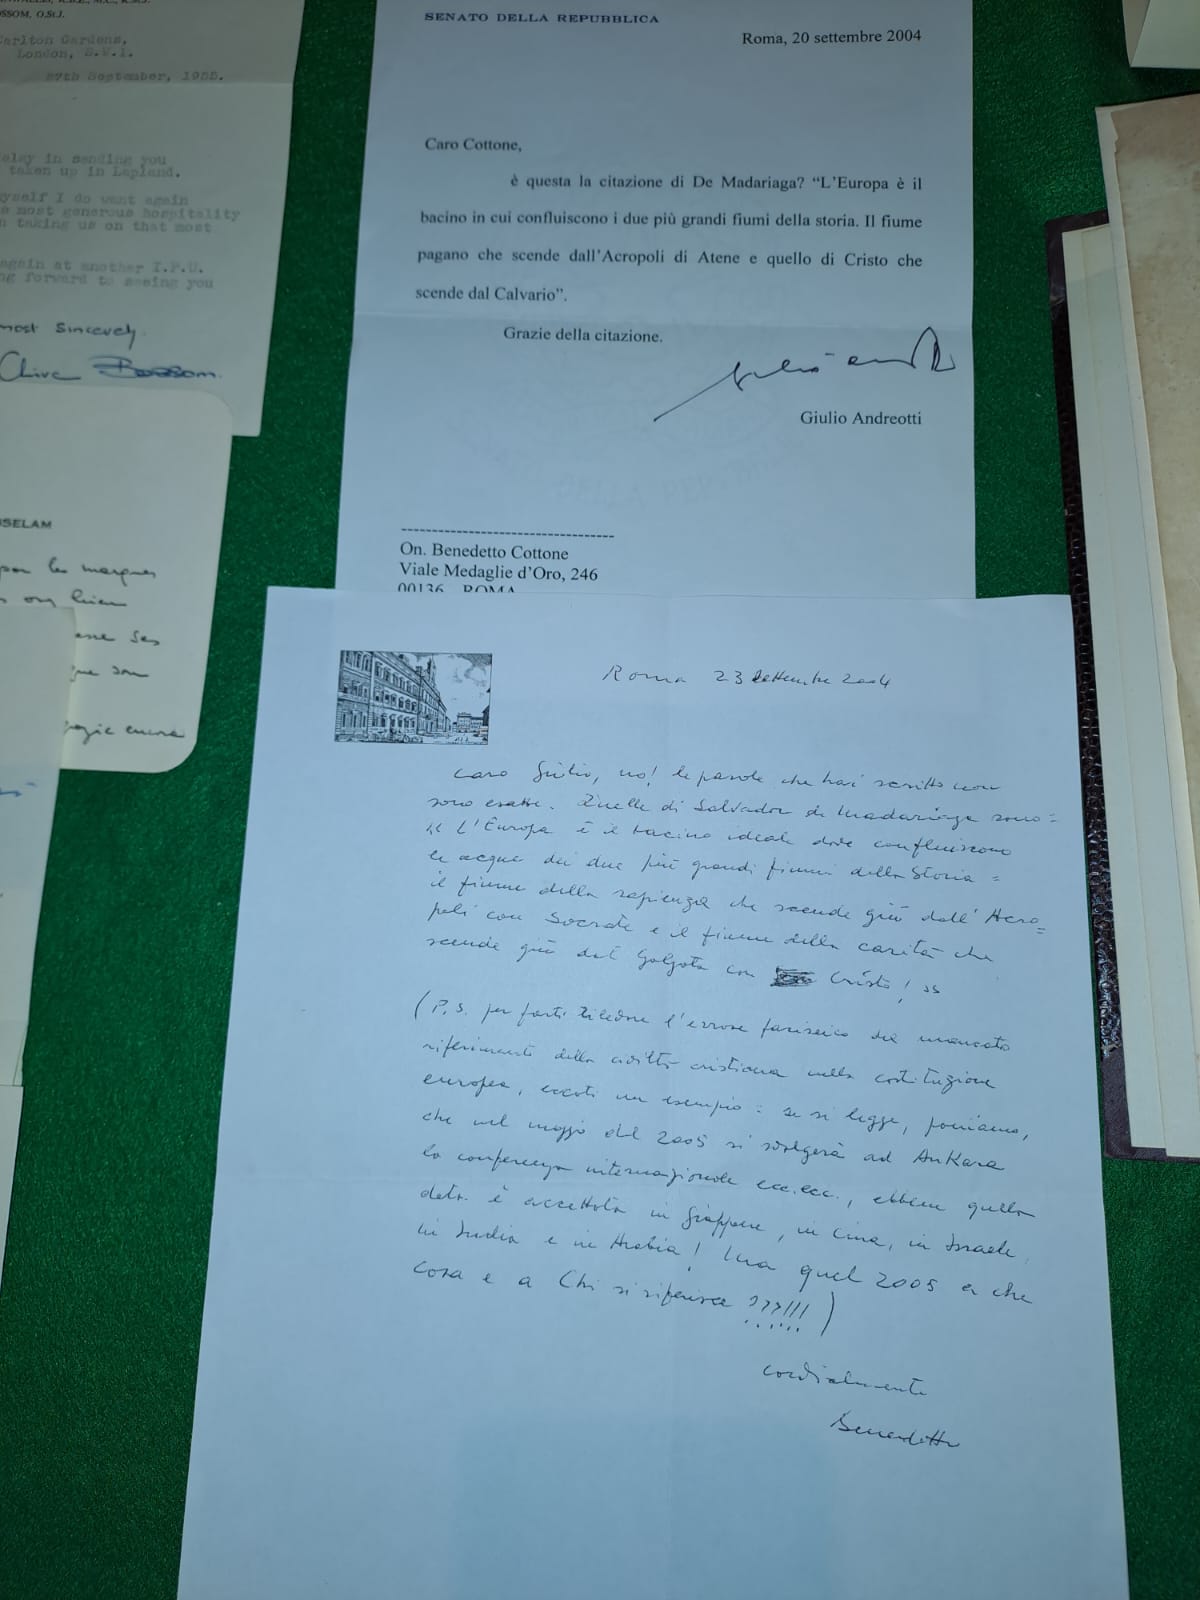 OSSOM, O.St.J.
Carlton Gardens,
London, S.W.1.
27th September, 1955.
elay in sending you
taken up in Lapland.
yself I do want again
most generous hospitality
n taking us on that most
again at another I.P.U.
ng forward to seeing you
most sincerely
Clive Bossom.
SSELAM
par les marques
ses
que son
encore
SENATO DELLA REPUBBLICA
Roma, 20 settembre 2004
Caro Cottone,
è questa la citazione di De Madariaga? “L’Europa è il
bacino in cui confluiscono i due più grandi fiumi della storia. Il fiume
pagano che scende dall’Acropoli di Atene e quello di Cristo che
scende dal Calvario”.
Grazie della citazione.
Giulio Andreotti
Giulio Andreotti
On. Benedetto Cottone
Viale Medaglie d’Oro, 246
00136 ROMA
Roma 23 settembre 2004
Caro Giulio, no! le parole che hai scritto non
sono esatte. Quelle di Salvador de Madariaga sono:
“L’Europa è il bacino ideale dove confluiscono
le acque dei due più grandi fiumi della Storia =
il fiume della sapienza che scende giù dall’Acro=
poli con Socrate e il fiume della carità che
scende giù dal Golgota con Cristo!”
(P.S. per farti ridere l’errore fariseico del mancato
riferimento della civiltà cristiana nella costituzione
europea, eccoti un esempio: se si legge, poniamo,
che nel maggio del 2005 si svolgerà ad Ankara
la conferenza internazionale ecc. ecc., ebbene quella
data è accettata in Giappone, in Cina, in Israele,
in India e in Arabia! Ma quel 2005 a che
cosa e a Chi si riferisce ???!!!)
cordialmente
Benedetto